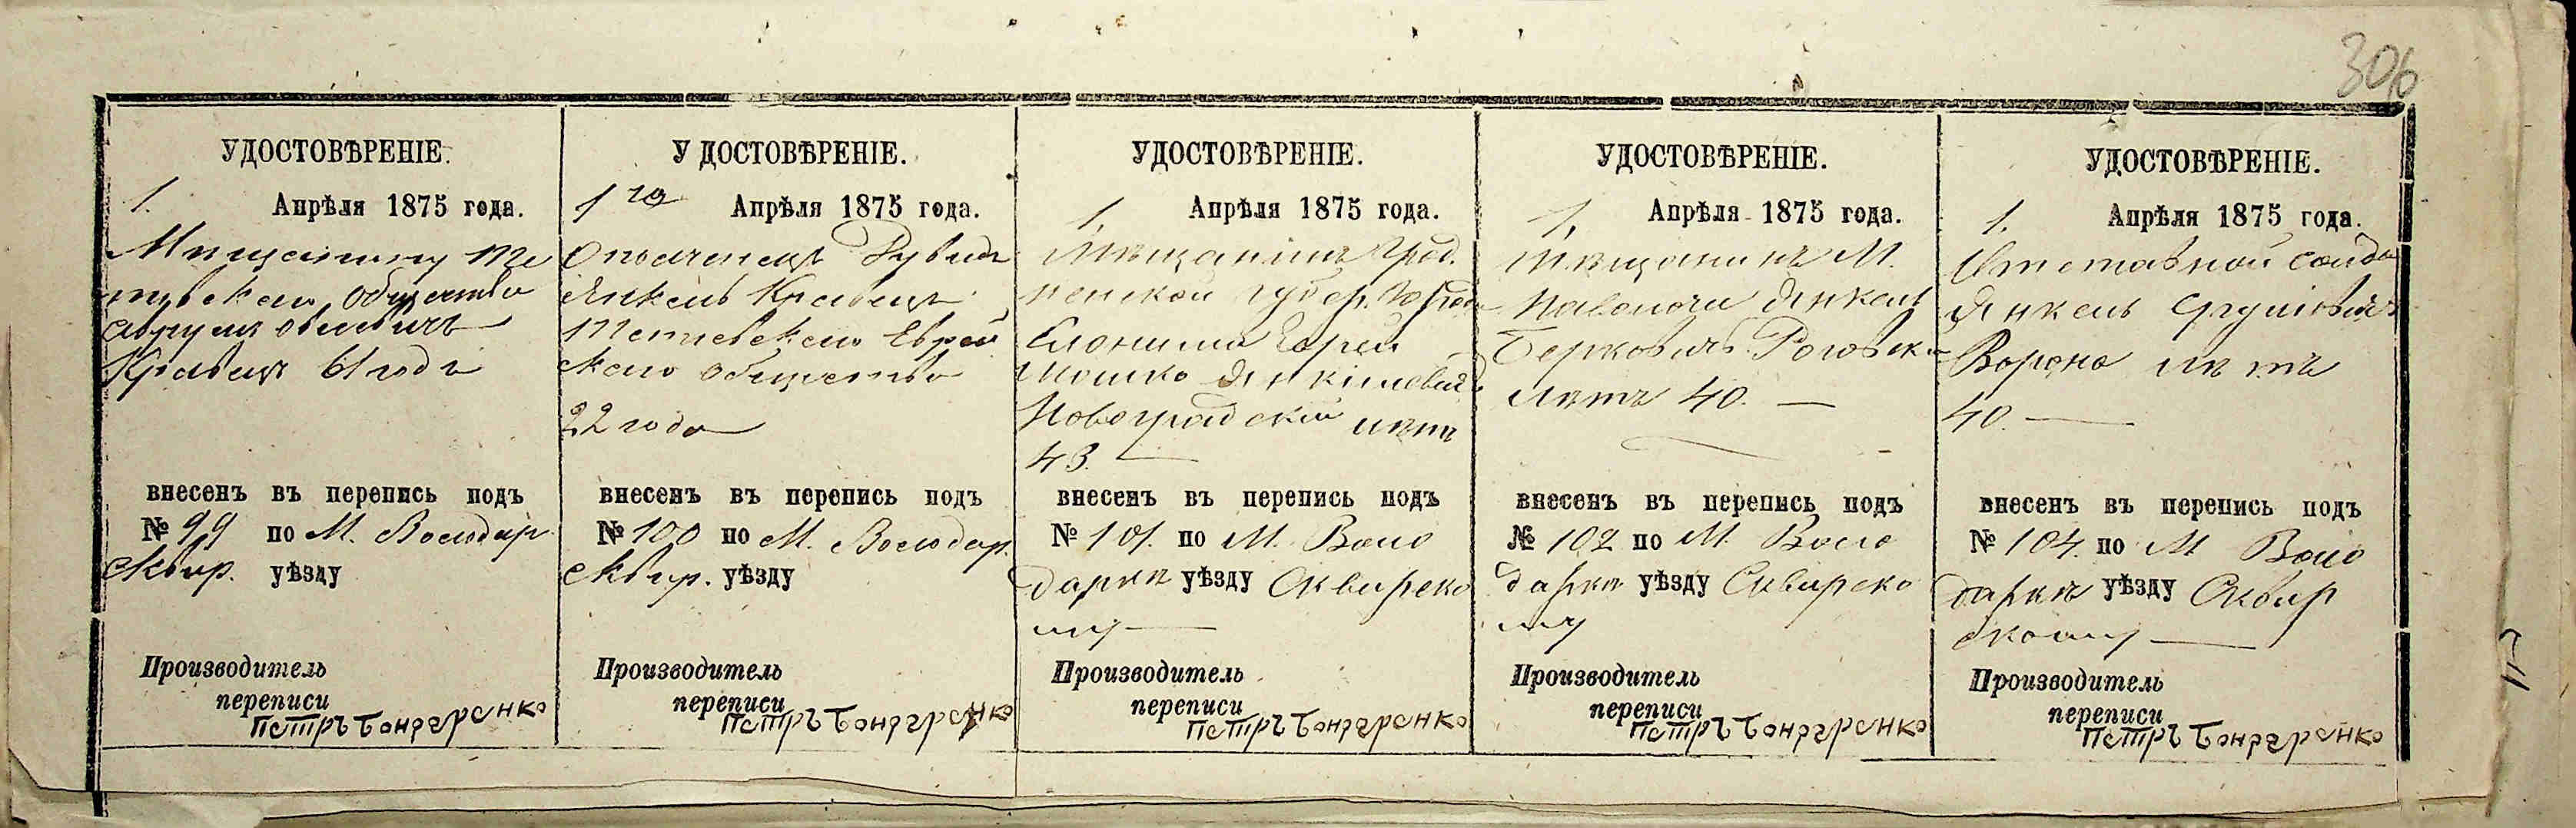 306
УДОСТОВѢРЕНІЕ.
1. Апрѣля 1875 года.
Мищанину Те
тивскаго Общества
Кравецъ 61 года
внесенъ въ перепись подъ
№ 99 по М. Володар.
Сквир. уѣзду
Производитель
переписи
Петръ Бондаренко
У ДОСТОВѢРЕНІЕ.
1го Апрѣля 1875 года.
Ополченецъ Рувинъ
Янкель Кравецъ
Тетиевскаго Еврей
скаго Общества
22 года
внесенъ въ перепись подъ
№ 100 по М. Володар.
Сквир. уѣзду
Производитель
переписи
Петръ Бондаренко
УДОСТОВѢРЕНІЕ.
1. Апрѣля 1875 года.
Мѣщанинъ Грод.
ненской губер. города
Слонима Еврей
Мошко Янкілевичъ
Новоградскій лѣтъ
43.
внесенъ въ перепись подъ
№ 101. по М. Воло
даркѣ уѣзду Сквирско
му
Производитель
переписи
Петръ Бондаренко
УДОСТОВѢРЕНІЕ.
1. Апрѣля 1875 года.
Мѣщанинъ М.
Паволочи Янкель
Берковичъ
лѣтъ 40.
внесенъ въ перепись подъ
№ 102 по М. Воло
даркѣ уѣзду Сквирско
му
Производитель
переписи
Петръ Бондаренко
УДОСТОВѢРЕНІЕ.
1. Апрѣля 1875 года.
Отставной солда
Янкель Сруліовичъ
Ворона лѣтъ
40.
внесенъ въ перепись подъ
№ 104. по М Воло
даркѣ уѣзду Сквир
скому
Производитель
переписи
Петръ Бондаренко